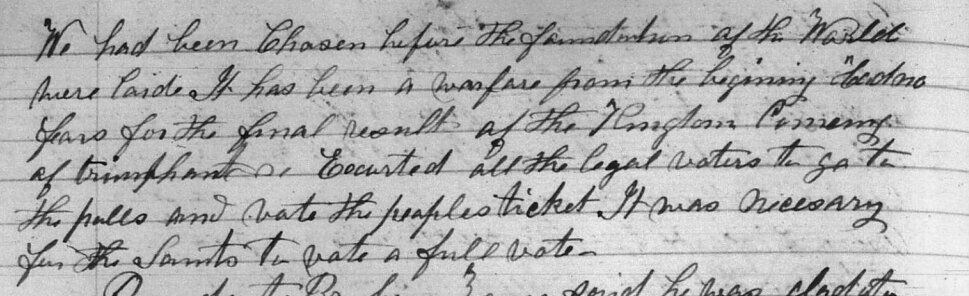 We had been Chosen before the foundation of the World
were laide It has been a warfare from the begining had no
fears for the final result of the Kingdom Comeing
of triumphant Exourted all the legal voters to go to
the polls and vote the peoples ticket It was necesary
for the Saints to vote a full vote-
said he was glad to